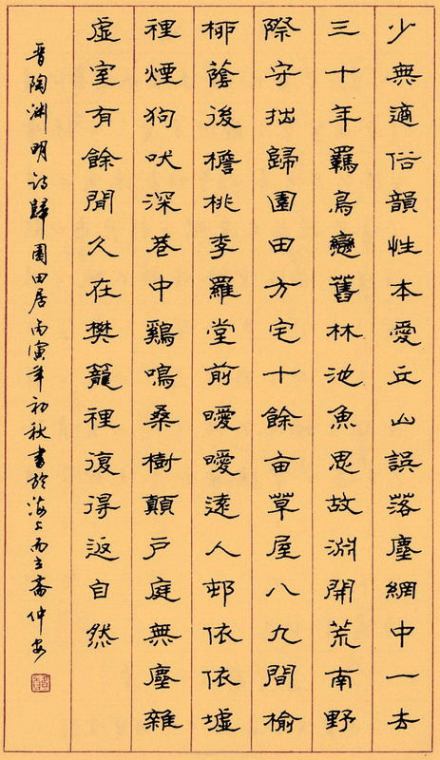 少無適俗韻性本愛丘山誤落塵網中一去
三十年羈鳥戀舊林池魚思故淵開荒南野
際守拙歸園田方宅十餘亩草屋八九間榆
柳蔭後檐桃李羅堂前曖曖遠人邨依依墟
裡煙狗吠深巷中鷄鳴桑樹顛戶庭無塵雜
虛室有餘閒久在樊籠裡復得返自然
晉陶渊明詩歸園田居丙寅年初秋書於海上斋仲安